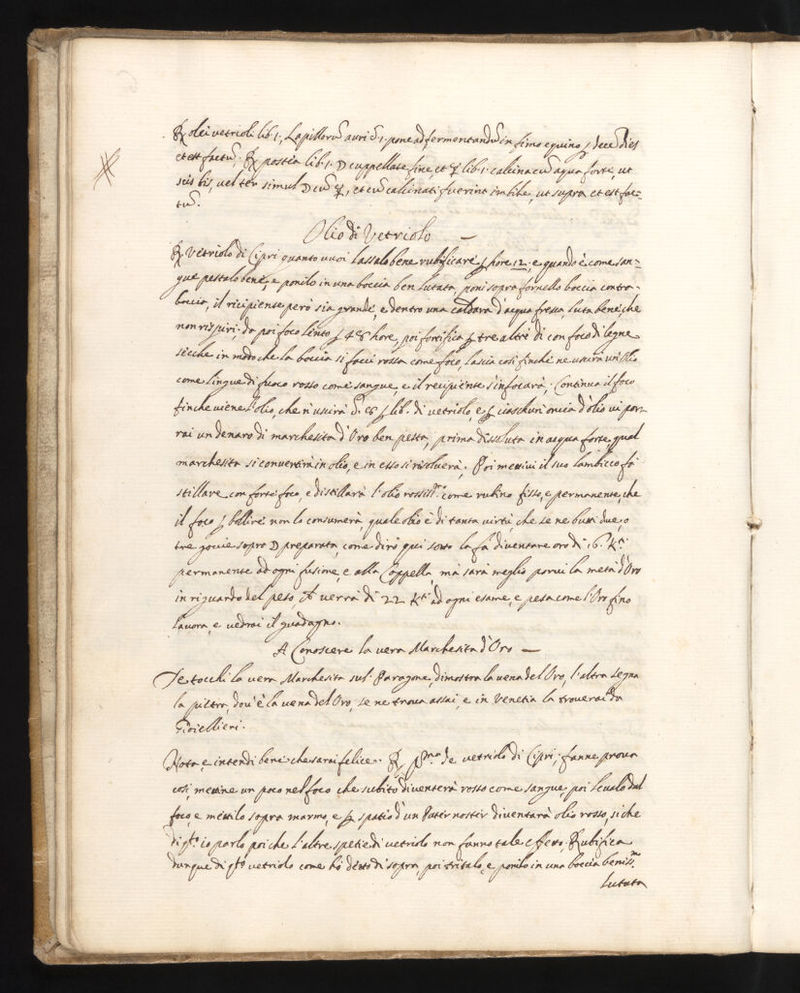 ℞ olei vetrioli lib. 1, Lapillorũ auri ʒ. 1. pone ad fermentandũ in fimo equino ꝑ dece dies
et est factũ, ℞ postea lib. 1. ☽ cuppellate, fine, et ☿ lib. 1. calcina cũ aqua forte, ut
scis bis, vel ter simul ☽ cũ ☿, et cũ calcinati fuerint imbibe, ut supra et est fac=
tũ.
Olio di Vetriolo —
℞ Vetriolo di Cipri quanto vuoi lassalo bene rubificare ꝑ hore 12, e quando è come san=
gue pestalo bene, e ponilo in una boccia ben lutata, poni sopra fornello boccia contro=
boccia, il ricipiente però sia grande, e dentro una caldara d'acqua fresca, luta bene che
non rispiri, da poi foco lento ꝑ 48 hore, poi fortifica ꝑ tre altre dì con foco di legne
secche in modo che la boccia si facci rossa come foco, lascia così finche ne uscirà un olio
come lingue di fuoco rosso come sangue, e il recipiente s'infocarà, Continua il foco
finche viene l'olio, che n'uscirà ʒ. 8 ꝑ lib. di vetriolo, e ꝑ ciaschuri oncia d'olio vi por=
rai un denaro di marchesita d'Oro ben pesta, prima dissoluta in acqua forte, qual
marchesita si convertirà in olio, e in esso si risolverà. Poi mettivi il suo lambicco fà
stillare con forte foco, e distillarà l'olio rossis.mo come rubino fisso, e permanente, che
il foco ꝑ bollire non lo consumerà, quale olio è di tanta virtù che se ne butti due, o
tre goccie sopra ☽ preparata, come dirò qui sotto la fà diventare oro di 16. K.ti
permanente ad ogni fusione, e alla Coppella, mà sarà meglio porvi la metà d'Oro
in riguardo del peso, et verrà di 22 K.ti ad ogni esame, e pesa come l'Oro fino
lavora, e vedrai il guadagno.
A Conoscere la vera Marchesita d'Oro —
Se tocchi la vera Marchesita sul Paragone, dimostra la vena del Oro, l'altra segna
la pietra, dov'è la vena del Oro, se ne trova assai, e in Venetia la troverai da
Gioiellieri.
Nota, e intendi bene che sarai felice. ℞ p.ma de vetriolo di Cipri, fanne prova
così, mettine un poco nel foco che subito diventerà rosso come sangue, poi levalo dal
foco, e mettilo sopra marmo, e ꝑ spatio d'un Pater noster diventarà olio rosso, siche
di q.to io parlo poiche l'altre spetie di vetriolo non fanno tale effetto, Rubifica
dunque di q.to vetriolo come hò detto di sopra, poi tritalo, e ponilo in una boccia beniss.mo
lutata